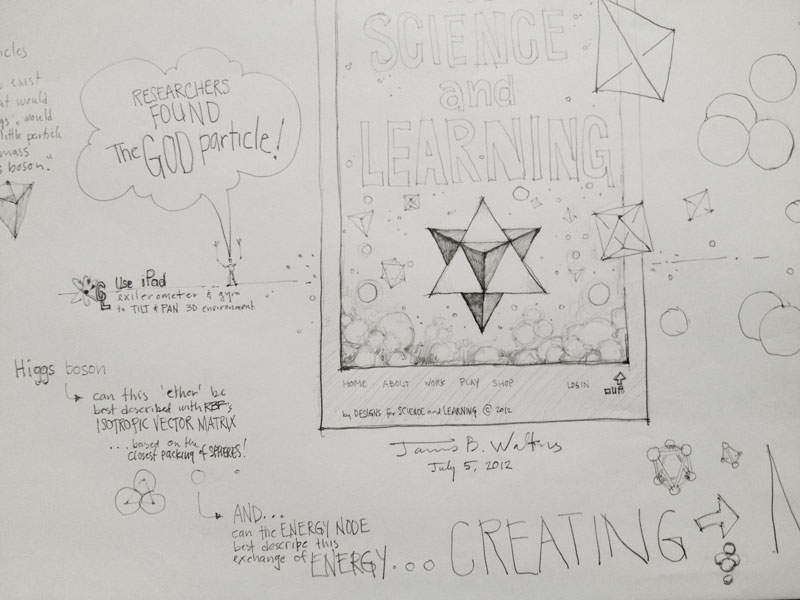 SCIENCE
and
LEARNING
RESEARCHERS
FOUND
The GOD particle!
exist
would
would
little particle
mass
boson."
Use iPad
exilerometer & gyro
to TILT & PAN 3D environment
HOME ABOUT WORK PLAY SHOP LOGIN
by DESIGNS for SCIENCE and LEARNING © 2012
James B. Walters
July 5, 2012
Higgs boson
can this 'ether' be
best described with RBF's
ISOTROPIC VECTOR MATRIX
...based on the
closest packing of SPHERES!
AND...
can the ENERGY NODE
best describe this
exchange of ENERGY...
CREATING